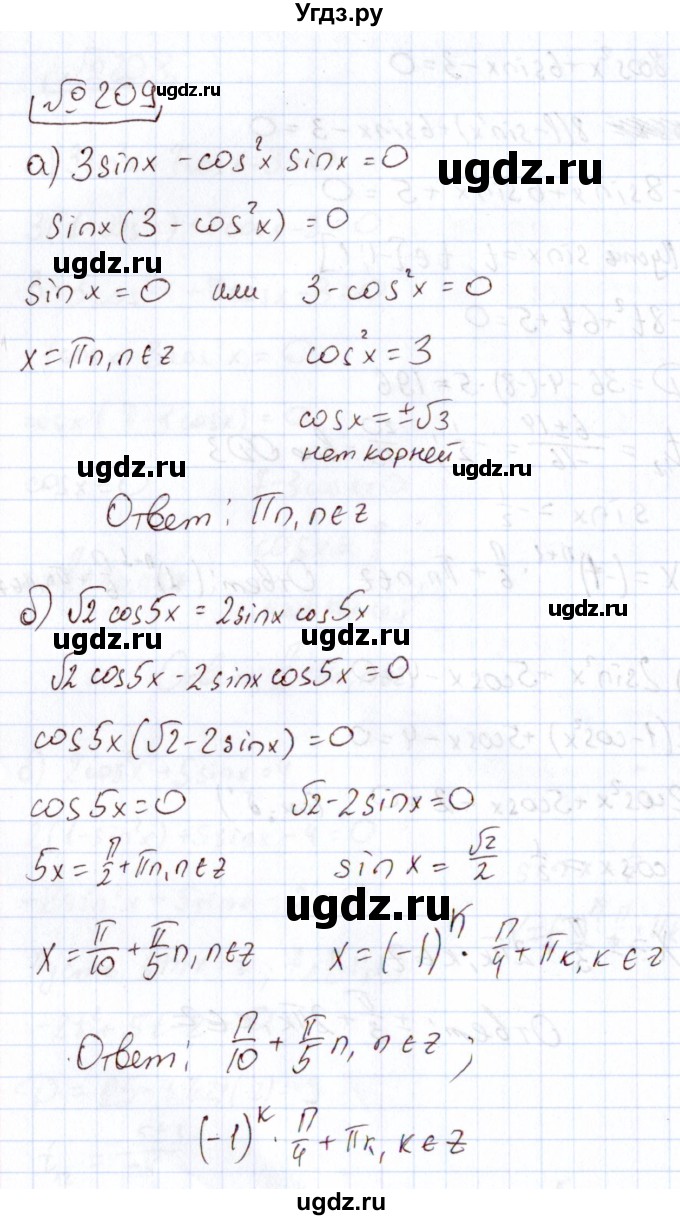 Угдз.ру
№209 ugdz.ru
а) 3sinx - cos²x sinx = 0
ugdz.ru
sinx(3 - cos²x) = 0
ugdz.ru
sin x = 0 или 3 - cos²x = 0
x = πn, n ∈ z cos²x = 3
cosx = ±√3
нет корней
ugdz.ru ugdz.ru
Ответ: πn, n ∈ z
б) √2 cos5x = 2sinx cos5x
ugdz.ru
ugdz.ru ugdz.ru
√2 cos5x - 2sinx cos5x = 0
cos5x(√2 - 2sinx) = 0
cos5x = 0 √2 - 2sinx = 0
5x = π/2 + πn, n ∈ z sinx = √2/2
ugdz.ru
x = π/10 + π/5 n, n ∈ z x = (-1)ⁿ · π/4 + πk, k ∈ z
Ответ: π/10 + π/5 n, n ∈ z;
(-1)ᵏ · π/4 + πk, k ∈ z
ugdz.ru